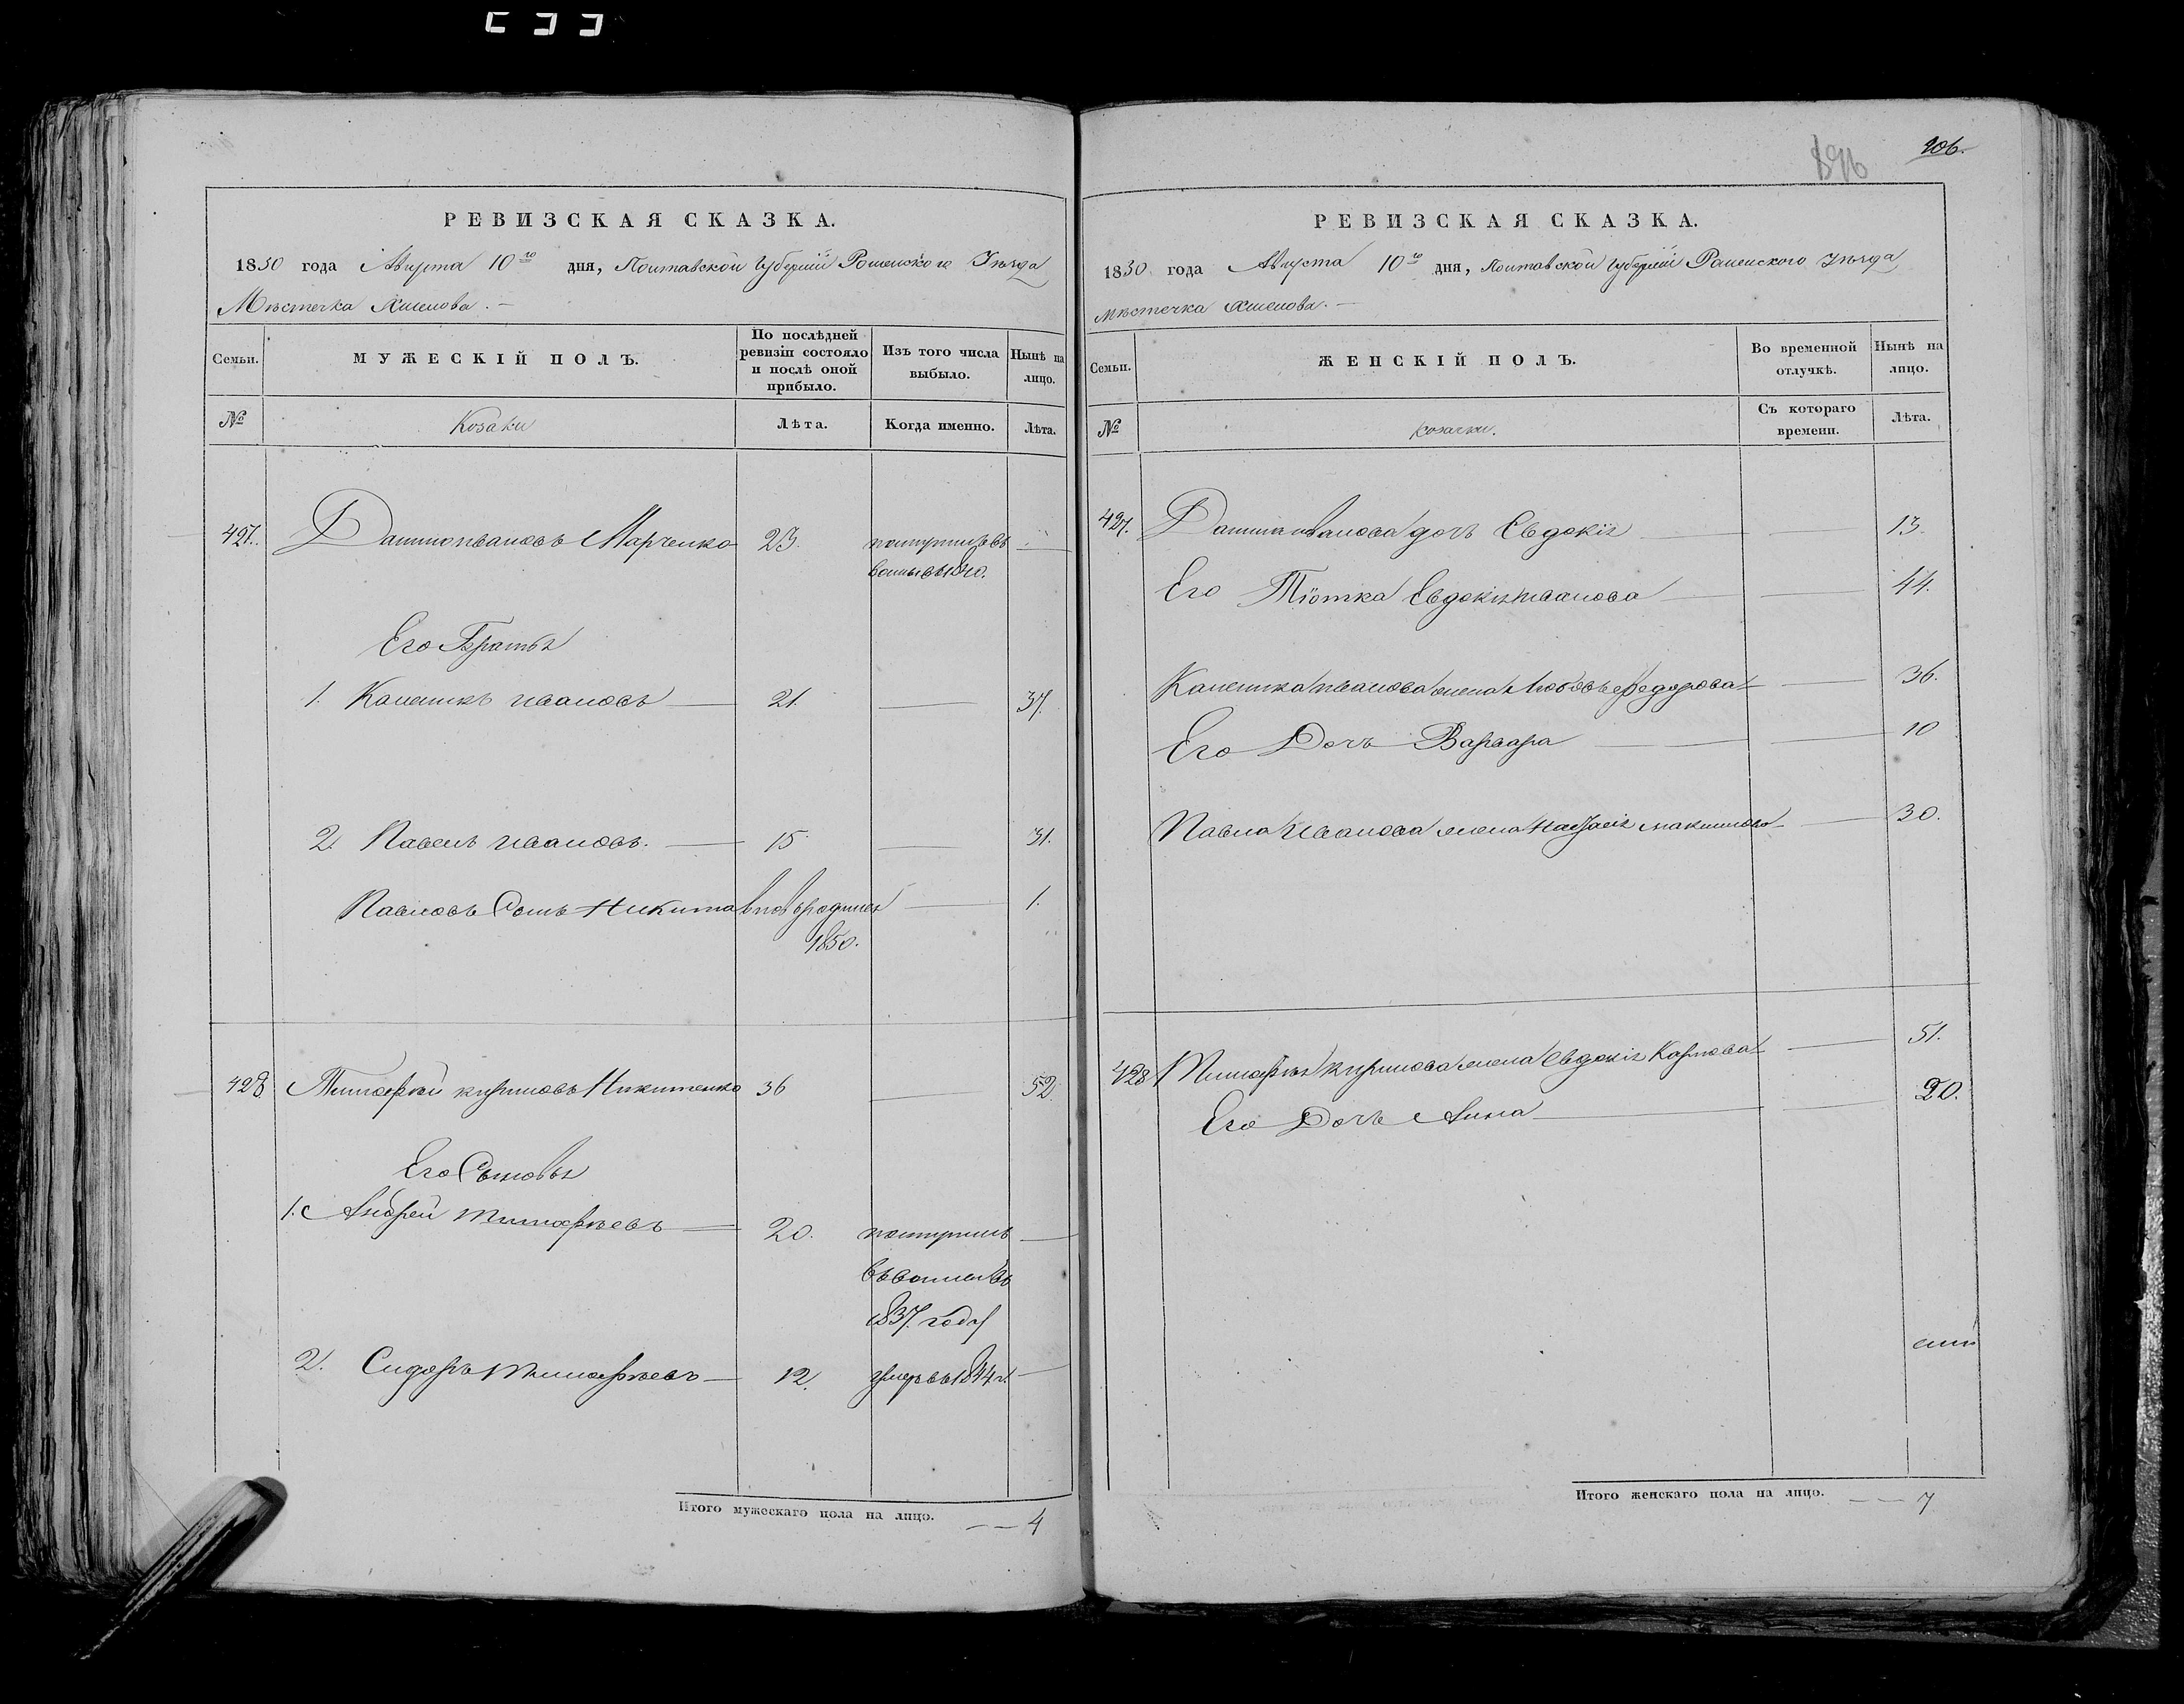 206.
РЕВИЗСКАЯ СКАЗКА.
1850 года Августа 10го дня, Полтавской Губернии Роменского Уѣзда
Мѣстечка Хмелова.
Семьи.
МУЖЕСКІЙ ПОЛЪ.
По послѣдней ревизіи состояло и послѣ оной прибыло.
Изъ того числа выбыло.
Нынѣ на лицо.
№
Козаки
Лѣта.
Когда именно.
Лѣта.
427. Данило Ивановъ Марченко 23. поступилъ въ
1840.
Его Братья
1. Калиникъ Ивановъ 21. 37.
2. Павелъ Ивановъ. 15 31.
Павловъ Сынъ Никита вновь родился 1.
1850.
428 Тимофей Кириловъ Никитенко 36 52.
Его Сыновья
1. Андрей Тимофеевъ 20. поступилъ
въ
1837. года
2. Сидоръ Тимофеевъ 12. умеръ въ 1844 г.
Итого мужескаго пола на лицо. 4
РЕВИЗСКАЯ СКАЗКА.
1850 года Августа 10го дня, Полтавской Губерніи Роменского Уѣзда
мѣстечка Хмелова.
Семьи.
ЖЕНСКІЙ ПОЛЪ.
Во временной отлучкѣ.
Нынѣ на лицо.
№
козачки.
Съ котораго времени.
Лѣта.
427. Данила Иванова дочь Евдокія 13.
Его Тіотка Евдокія Иванова 44.
Калиника Иванова жена Любовь Федорова 36.
Его Дочь Варвара 10
Павла Иванова жена Настасія Максимова 30.
428 Тимофея Кирилова жена Евдокія Карпова 51.
Его Дочь Анна 20.
Итого женскаго пола на лицо. 7